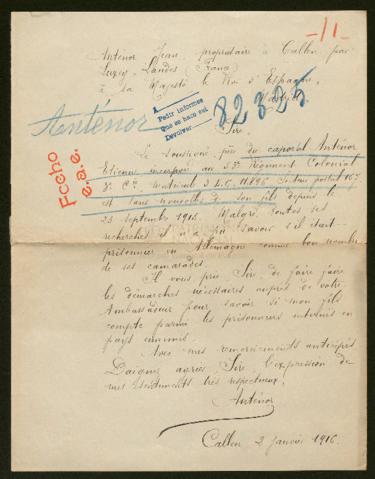 -/1-
Anténor Jean, propriétaire à Callen par
Luxey - Landes (France)
à sa Majesté le Roi d'Espagne,
Madrid
1
Pedir informes
Que se hace así
Devolver
82325
Anténor
Sire,
Fecho
e.a.e.
Le soussigné, père du caporal Anténor
Etienne incorporé au 53e Régiment Colonial
Cie matricule 3 L.C. 11.896 Secteur postal 167
est sans nouvelles de son fils depuis le
23 septembre 1915. Malgré toutes ses
recherches il n'a pu savoir s'il était
prisonnier en Allemagne comme bon nombre
de ses camarades.
Il vous prie Sire de faire faire
les démarches nécessaires auprès de votre
Ambassadeur pour savoir si mon fils
compte parmi les prisonniers internés en
pays ennemi.
Avec mes remerciements anticipés
Daignez agréer, Sire, l'expression de
mes sentiments très respectueux.
Anténor
Callen 2 janvier 1916.